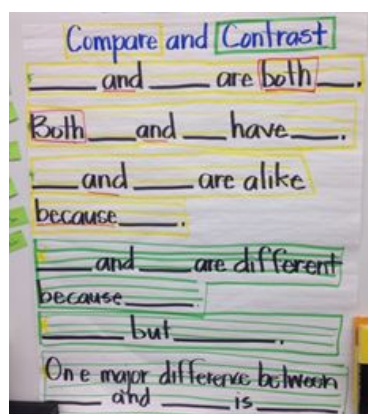 Compare and Contrast
____ and ____ are both ___.
Both ___ and ___ have ___.
___ and ____ are alike
because ____.
____ and ____ are different
because ____.
____ but ____.
One major difference between
____ and ____ is ____